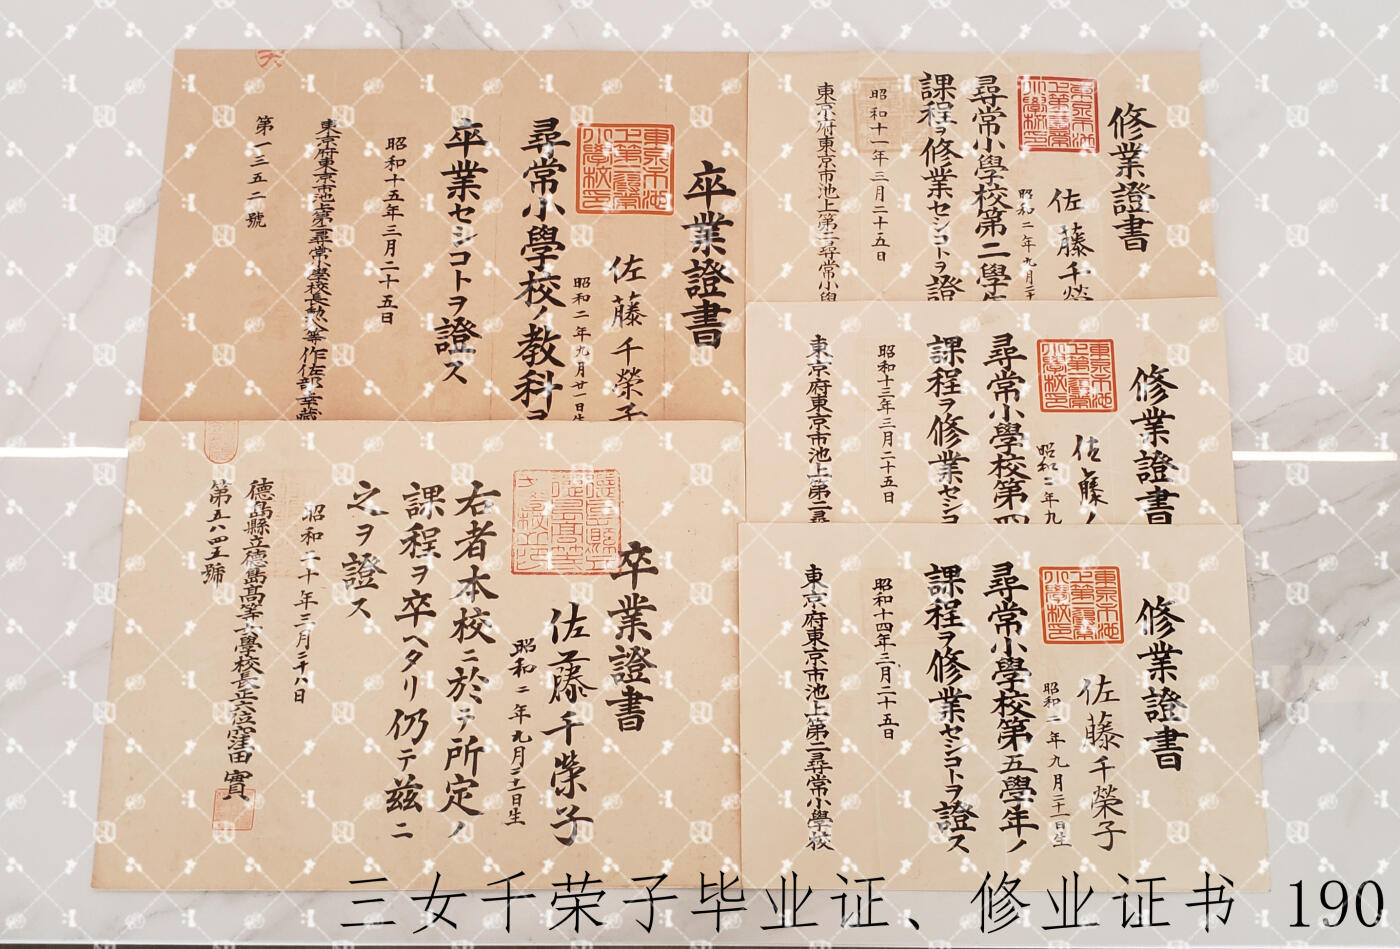 卒業證書
佐藤千榮子
昭和二年九月廿一日生
尋常小學校ノ教科ヲ
卒業セシコトヲ證ス
昭和十五年三月二十五日
東京府東京市池上第二尋常小學校長勲八等作佐部幸藏
第一三五二號
修業證書
佐藤千榮
昭和二年九月二十
尋常小學校第二學年
課程ヲ修業セシコトヲ證
昭和十一年三月二十五日
東京府東京市池上第二尋常小學
修業證書
佐藤
昭和二年九
尋常小學校第四
課程ヲ修業セシコ
昭和十三年三月二十五日
東京府東京市池上第二尋
修業證書
佐藤千榮子
昭和二年九月二十一日生
尋常小學校第五學年ノ
課程ヲ修業セシコトヲ證ス
昭和十四年三月二十五日
東京府東京市池上第二尋常小學校
卒業證書
佐藤千榮子
昭和二年九月二十一日生
右者本校ニ於テ所定ノ
課程ヲ卒ヘタリ仍テ茲ニ
之ヲ證ス
昭和二十年三月二十八日
德島縣立德島高等女學校長正六位窪田實
第五八四五號
三女千荣子毕业证、修业证书 190